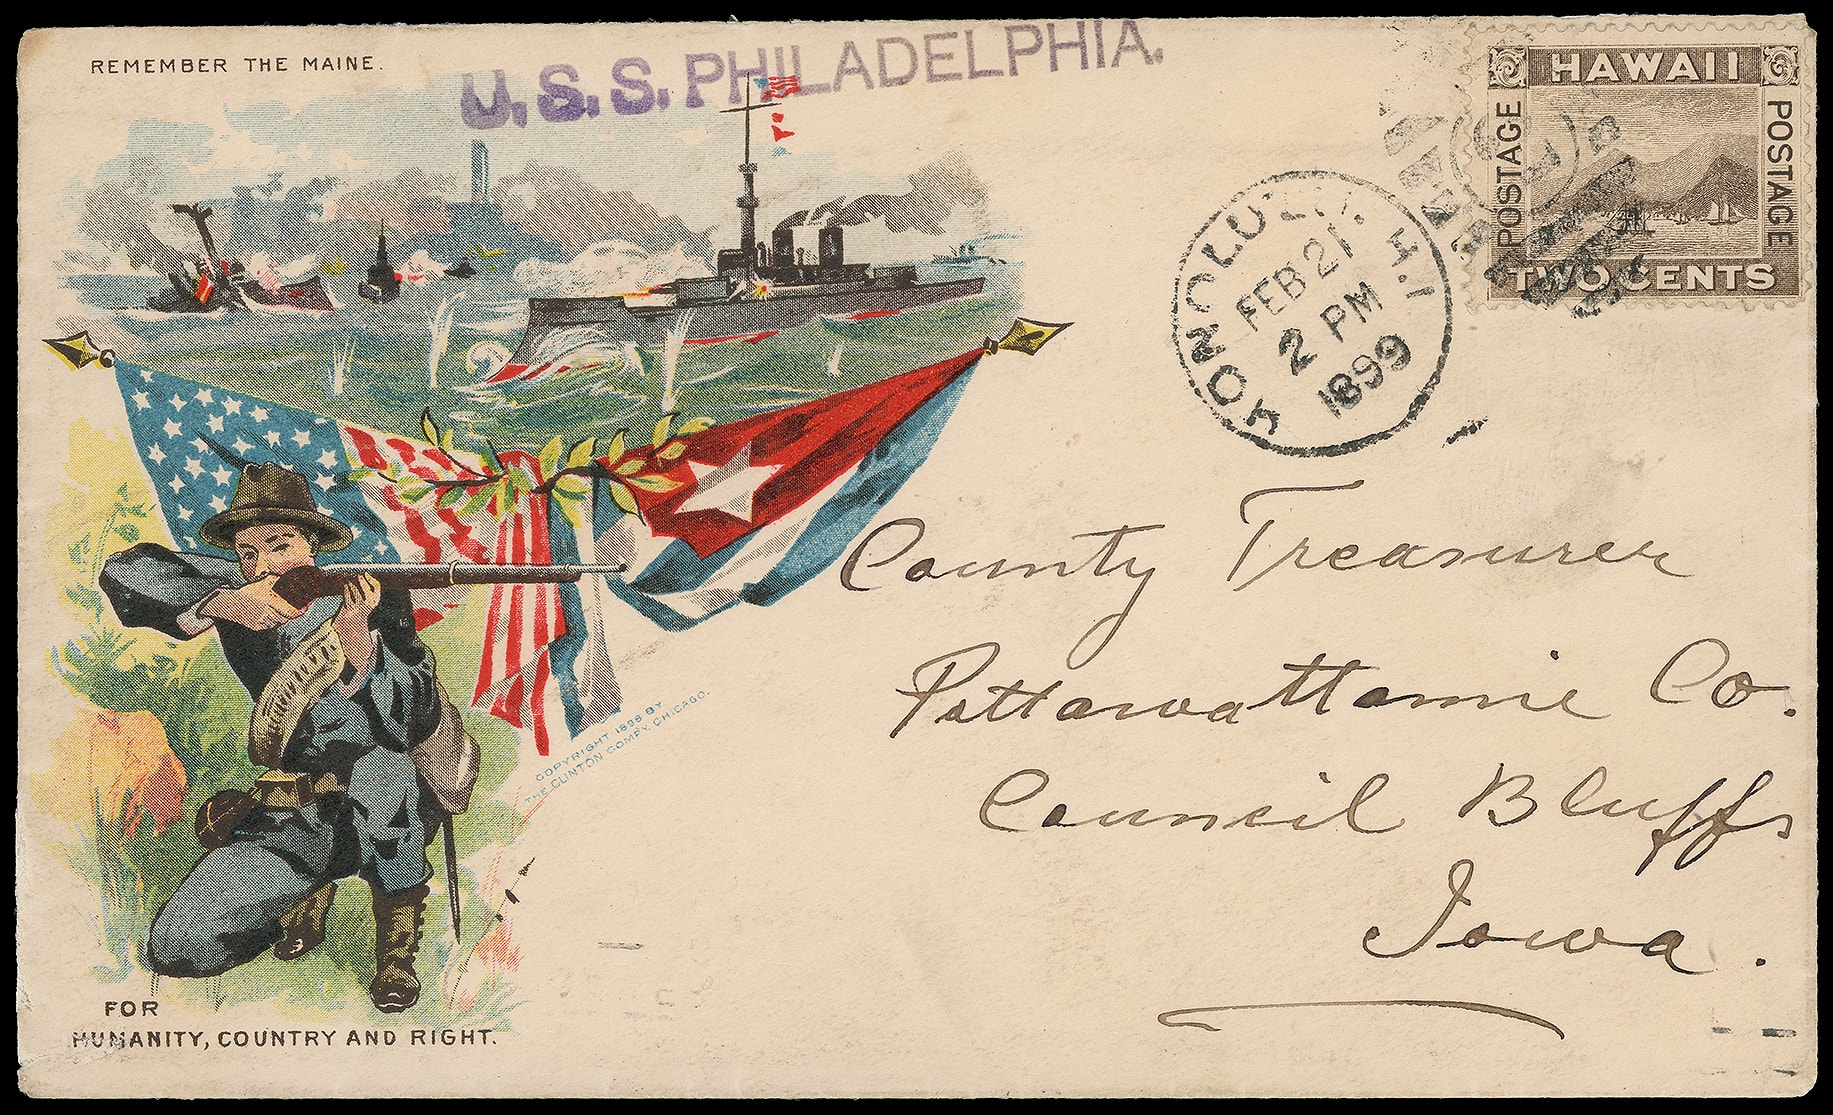 REMEMBER THE MAINE.
U.S.S. PHILADELPHIA.
HAWAII
POSTAGE
POSTAGE
TWO CENTS
HONOLULU. H.I.
FEB 21
2 PM
1899
County Treasurer
Pottawattamie Co.
Council Bluffs
Iowa.
COPYRIGHT 1898 BY
THE CLINTON COMPY. CHICAGO.
FOR
HUMANITY, COUNTRY AND RIGHT.